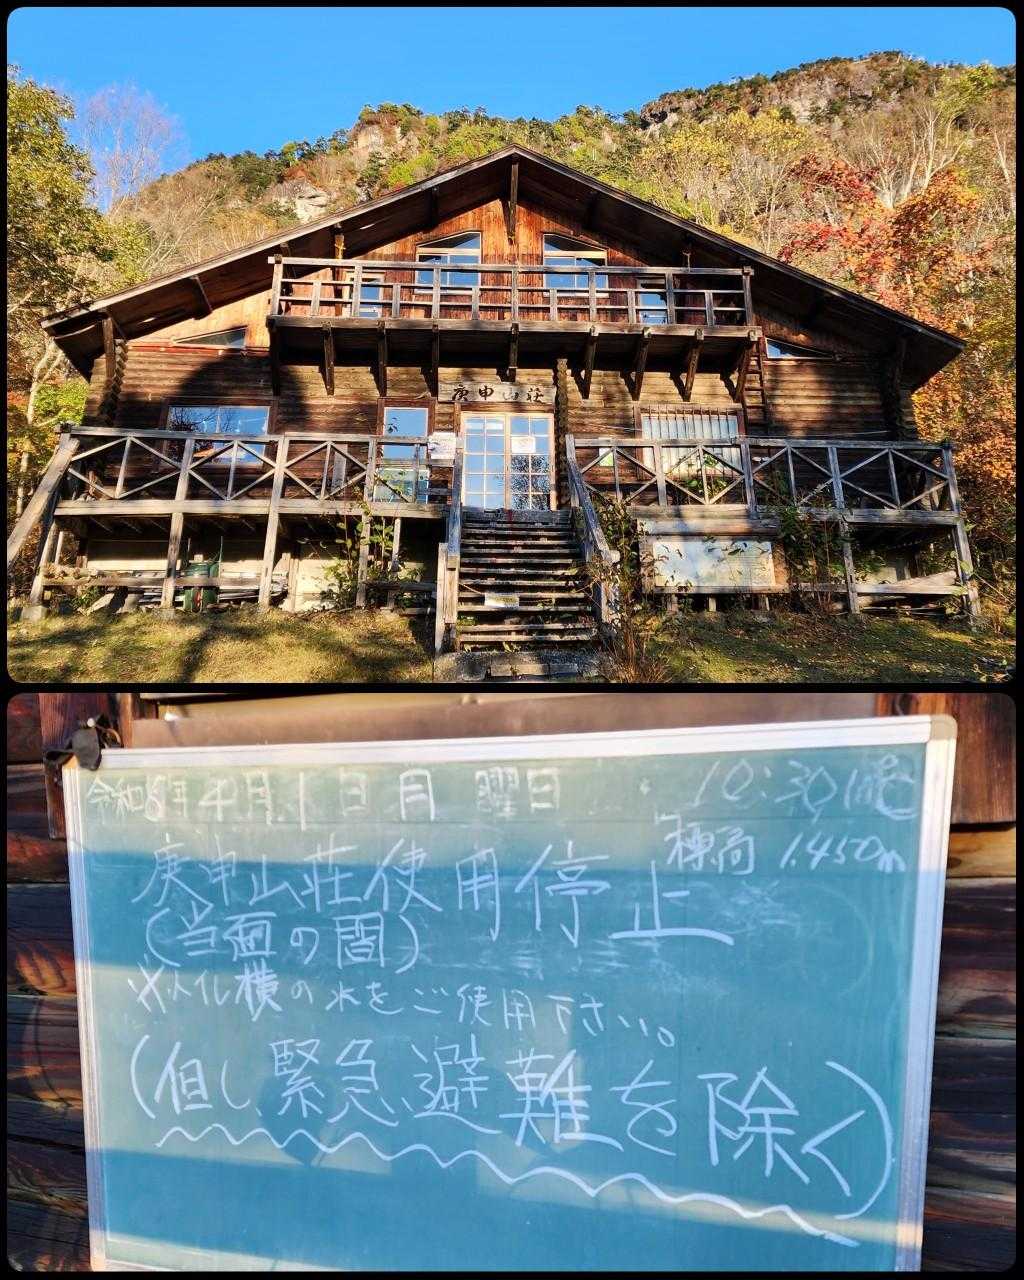 庚申山荘
令和6年4月1日月曜日 10:30現在
標高 1.450m
庚申山荘使用停止
(当面の間)
※トイレ横の水をご使用下さい。
(但し、緊急避難を除く)